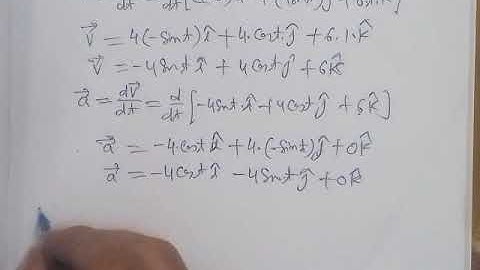 dt dt
V⃗ = 4(-Sint)î + 4.Cost.ĵ + 6.1.k̂
V⃗ = -4Sint î + 4Cost ĵ + 6k̂
a⃗ = dV⃗/dt = d/dt [-4Sint.î + 4Cost ĵ + 6k̂]
a⃗ = -4.Cost.î + 4.(-Sint)ĵ + 0k̂
a⃗ = -4Cost î - 4Sint ĵ + 0k̂